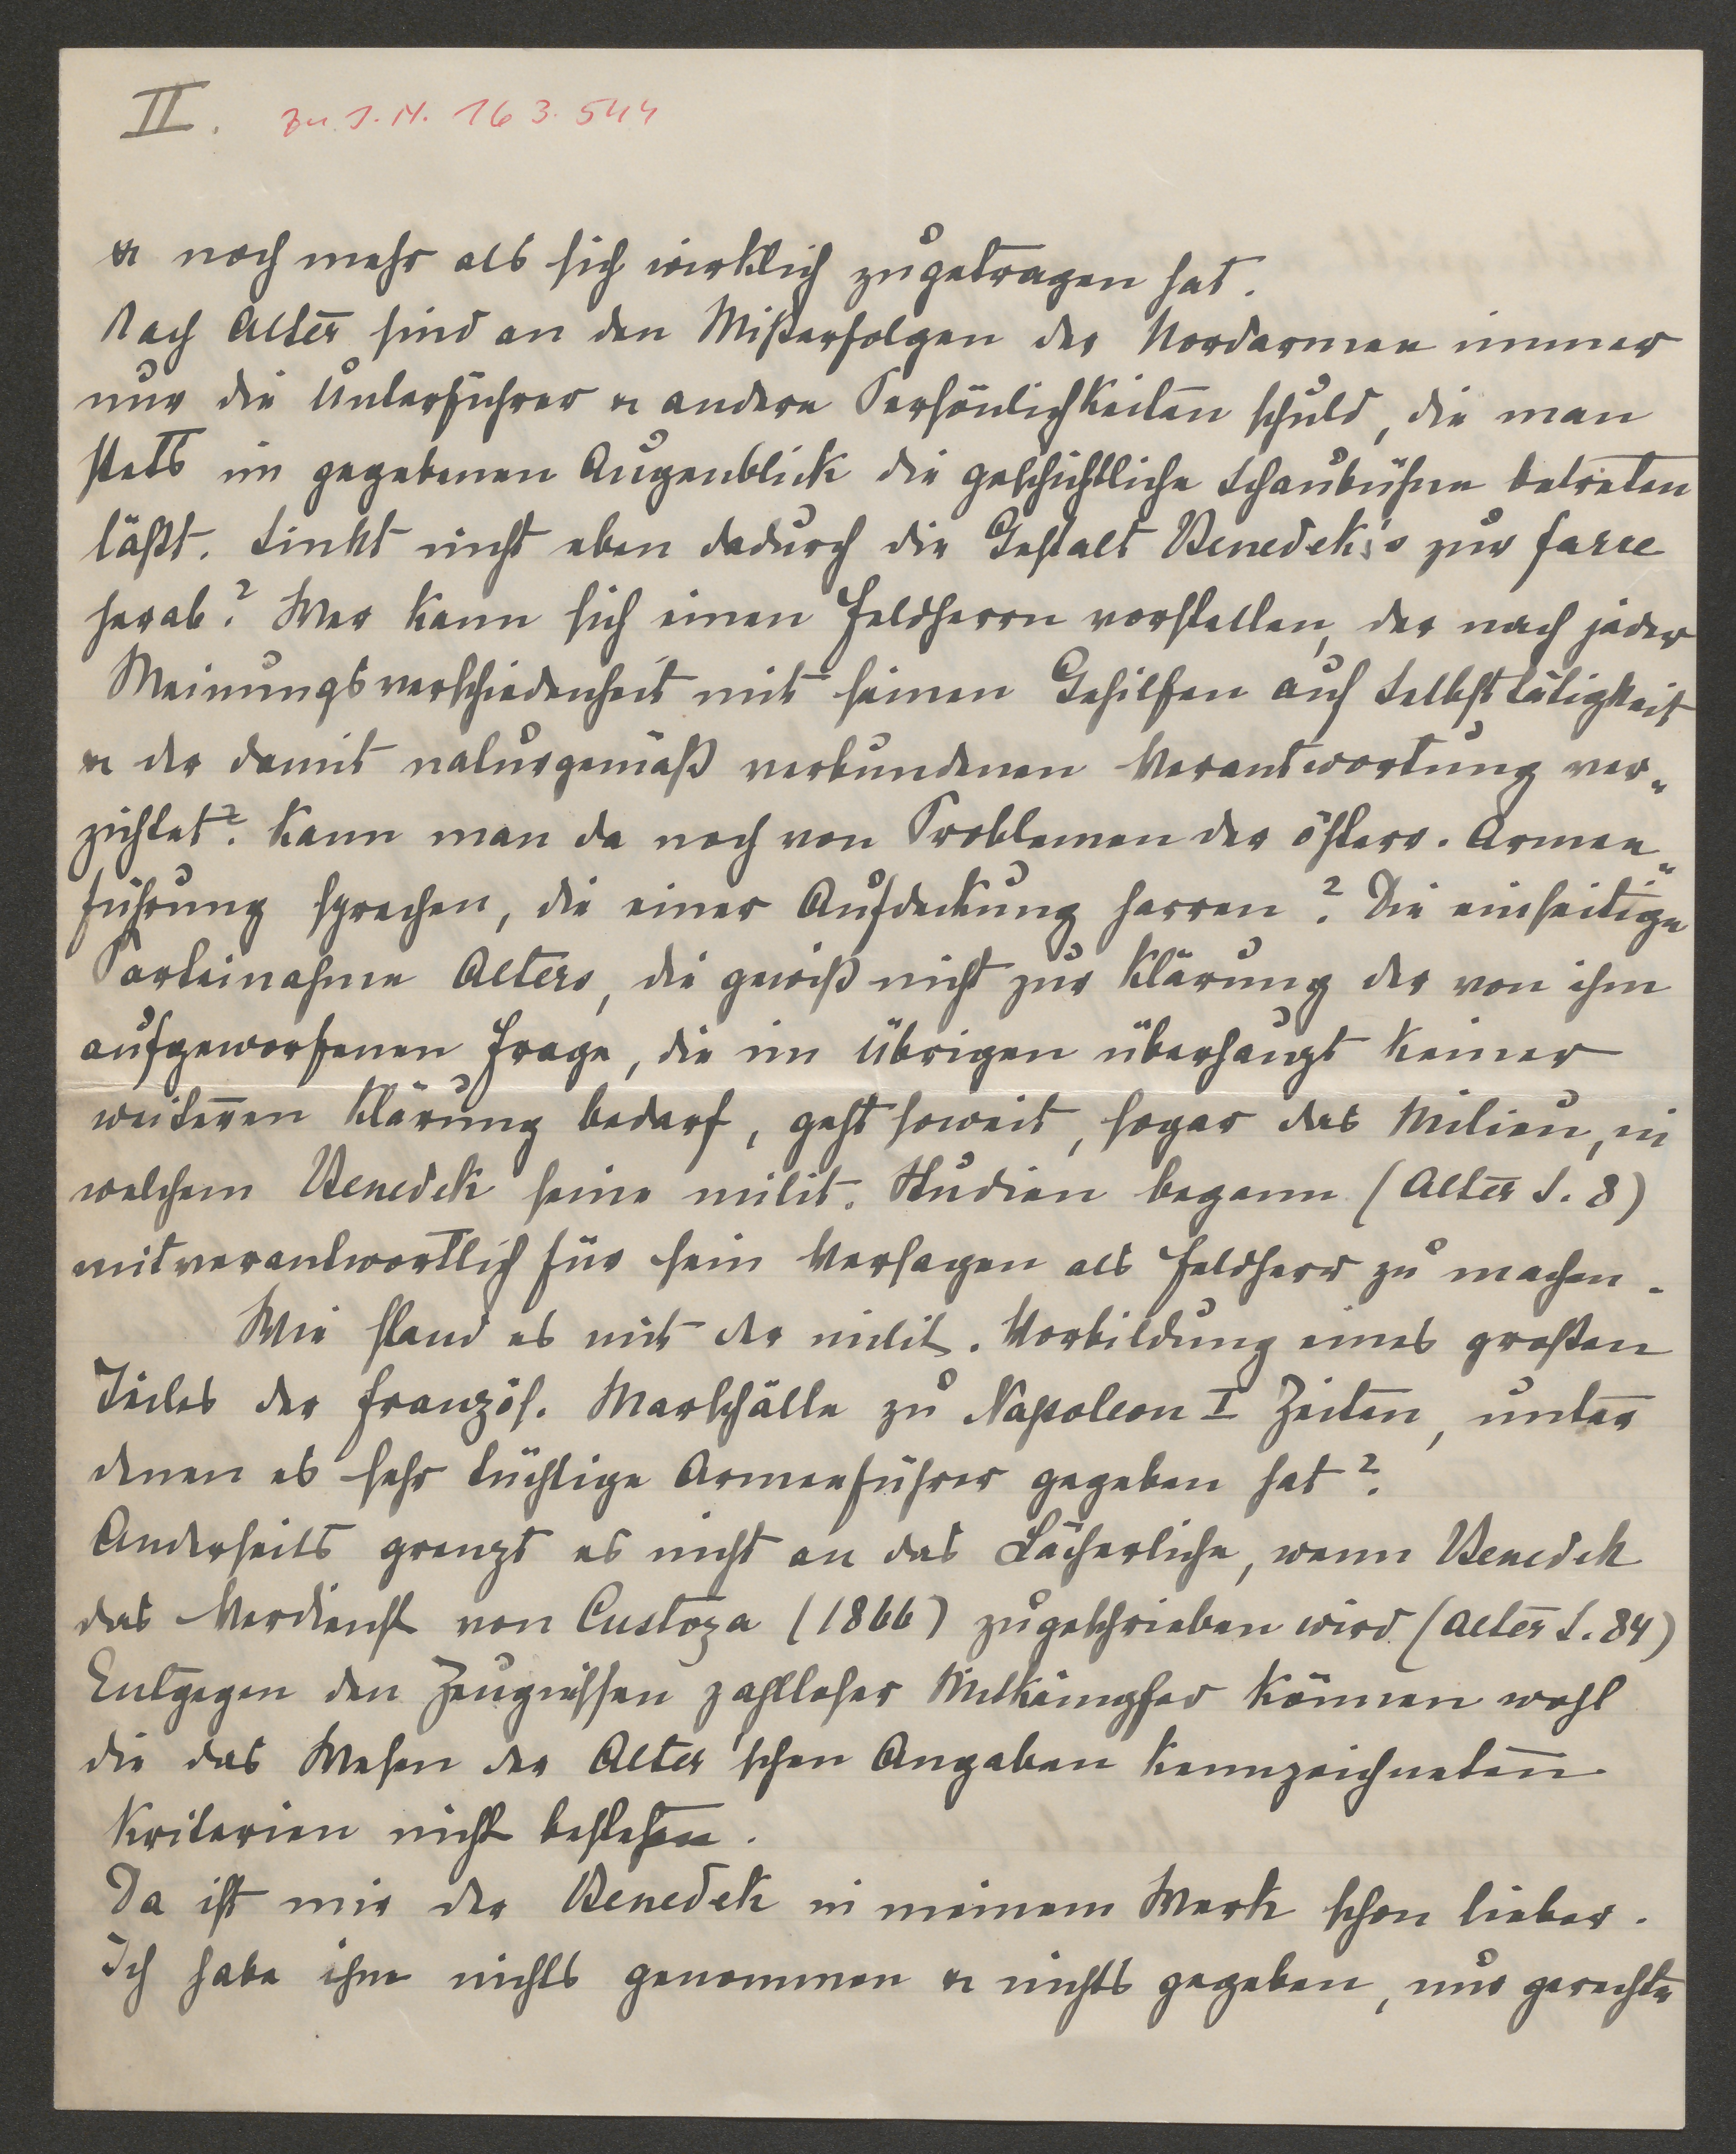 II. Zu I. N. 163.544
u noch mehr als sich wirklich zugetragen hat.
Nach Alter sind an den Mißerfolgen der Nordarmee immer
nur die Unterführer u andere Persönlichkeiten schuld, die man
stets im gegebenen Augenblick die geschichtliche Schaubühne betreten
läßt. Sinkt nicht eben dadurch die Gestalt Benedek's zur farce
herab? Wer kann sich einen Feldherrn vorstellen, der nach jeder
Meinungsverschiedenheit mit seinen Gehilfen auf Selbsttätigkeit
u der damit naturgemäß verbundenen Verantwortung ver„
zichtet? Kann man da noch von Problemen der österr. Armee„
führung sprechen, die einer Aufdeckung harren? Die einseitige
Parteinahme Alters, die gewiß nicht zur Klärung der von ihm
aufgeworfenen Frage, die im Übrigen überhaupt keiner
weiteren Klärung bedarf, geht soweit, sogar das Milieu, in
welchem Benedek seine milit. Studien begann (Alter S. 8)
mitverantwortlich für sein Versagen als Feldherr zu machen.
Wie stand es mit der milit. Vorbildung eines großen
Teiles der französ. Marschälle zu Napoleon I Zeiten, unter
denen es sehr tüchtige Armeeführer gegeben hat?
Anderseits grenzt es nicht an das Lächerliche, wenn Benedek
das Verdienst von Custoza (1866) zugeschrieben wird (Alter S. 84)
Entgegen den Zeugnissen zahlloser Mitkämpfer können wohl
die das Wesen der Alter'schen Angaben kennzeichneten
Kriterien nicht bestehen.
Da ist mir der Benedek in meinem Werk schon lieber.
Ich habe ihm nichts genommen u nichts gegeben, nur gerechte